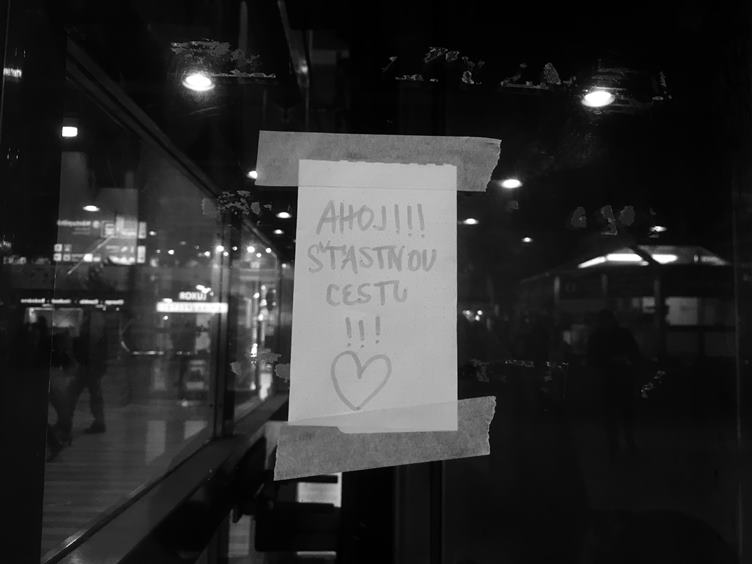 AHOJ!!!
ŠTASTNOU
CESTU
!!!